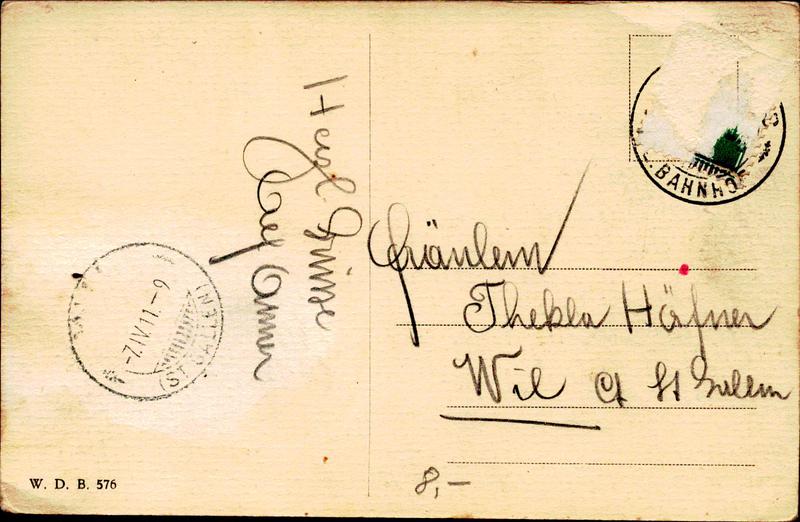 Herzl. Grüsse
Fräulein
Thekla Häfner
Wil Ct St Gallen
BAHNHO
-7.IV.11.-9
(ST. GALLEN)
W. D. B. 576
8,-